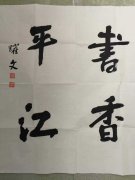 書香
平江
耀文